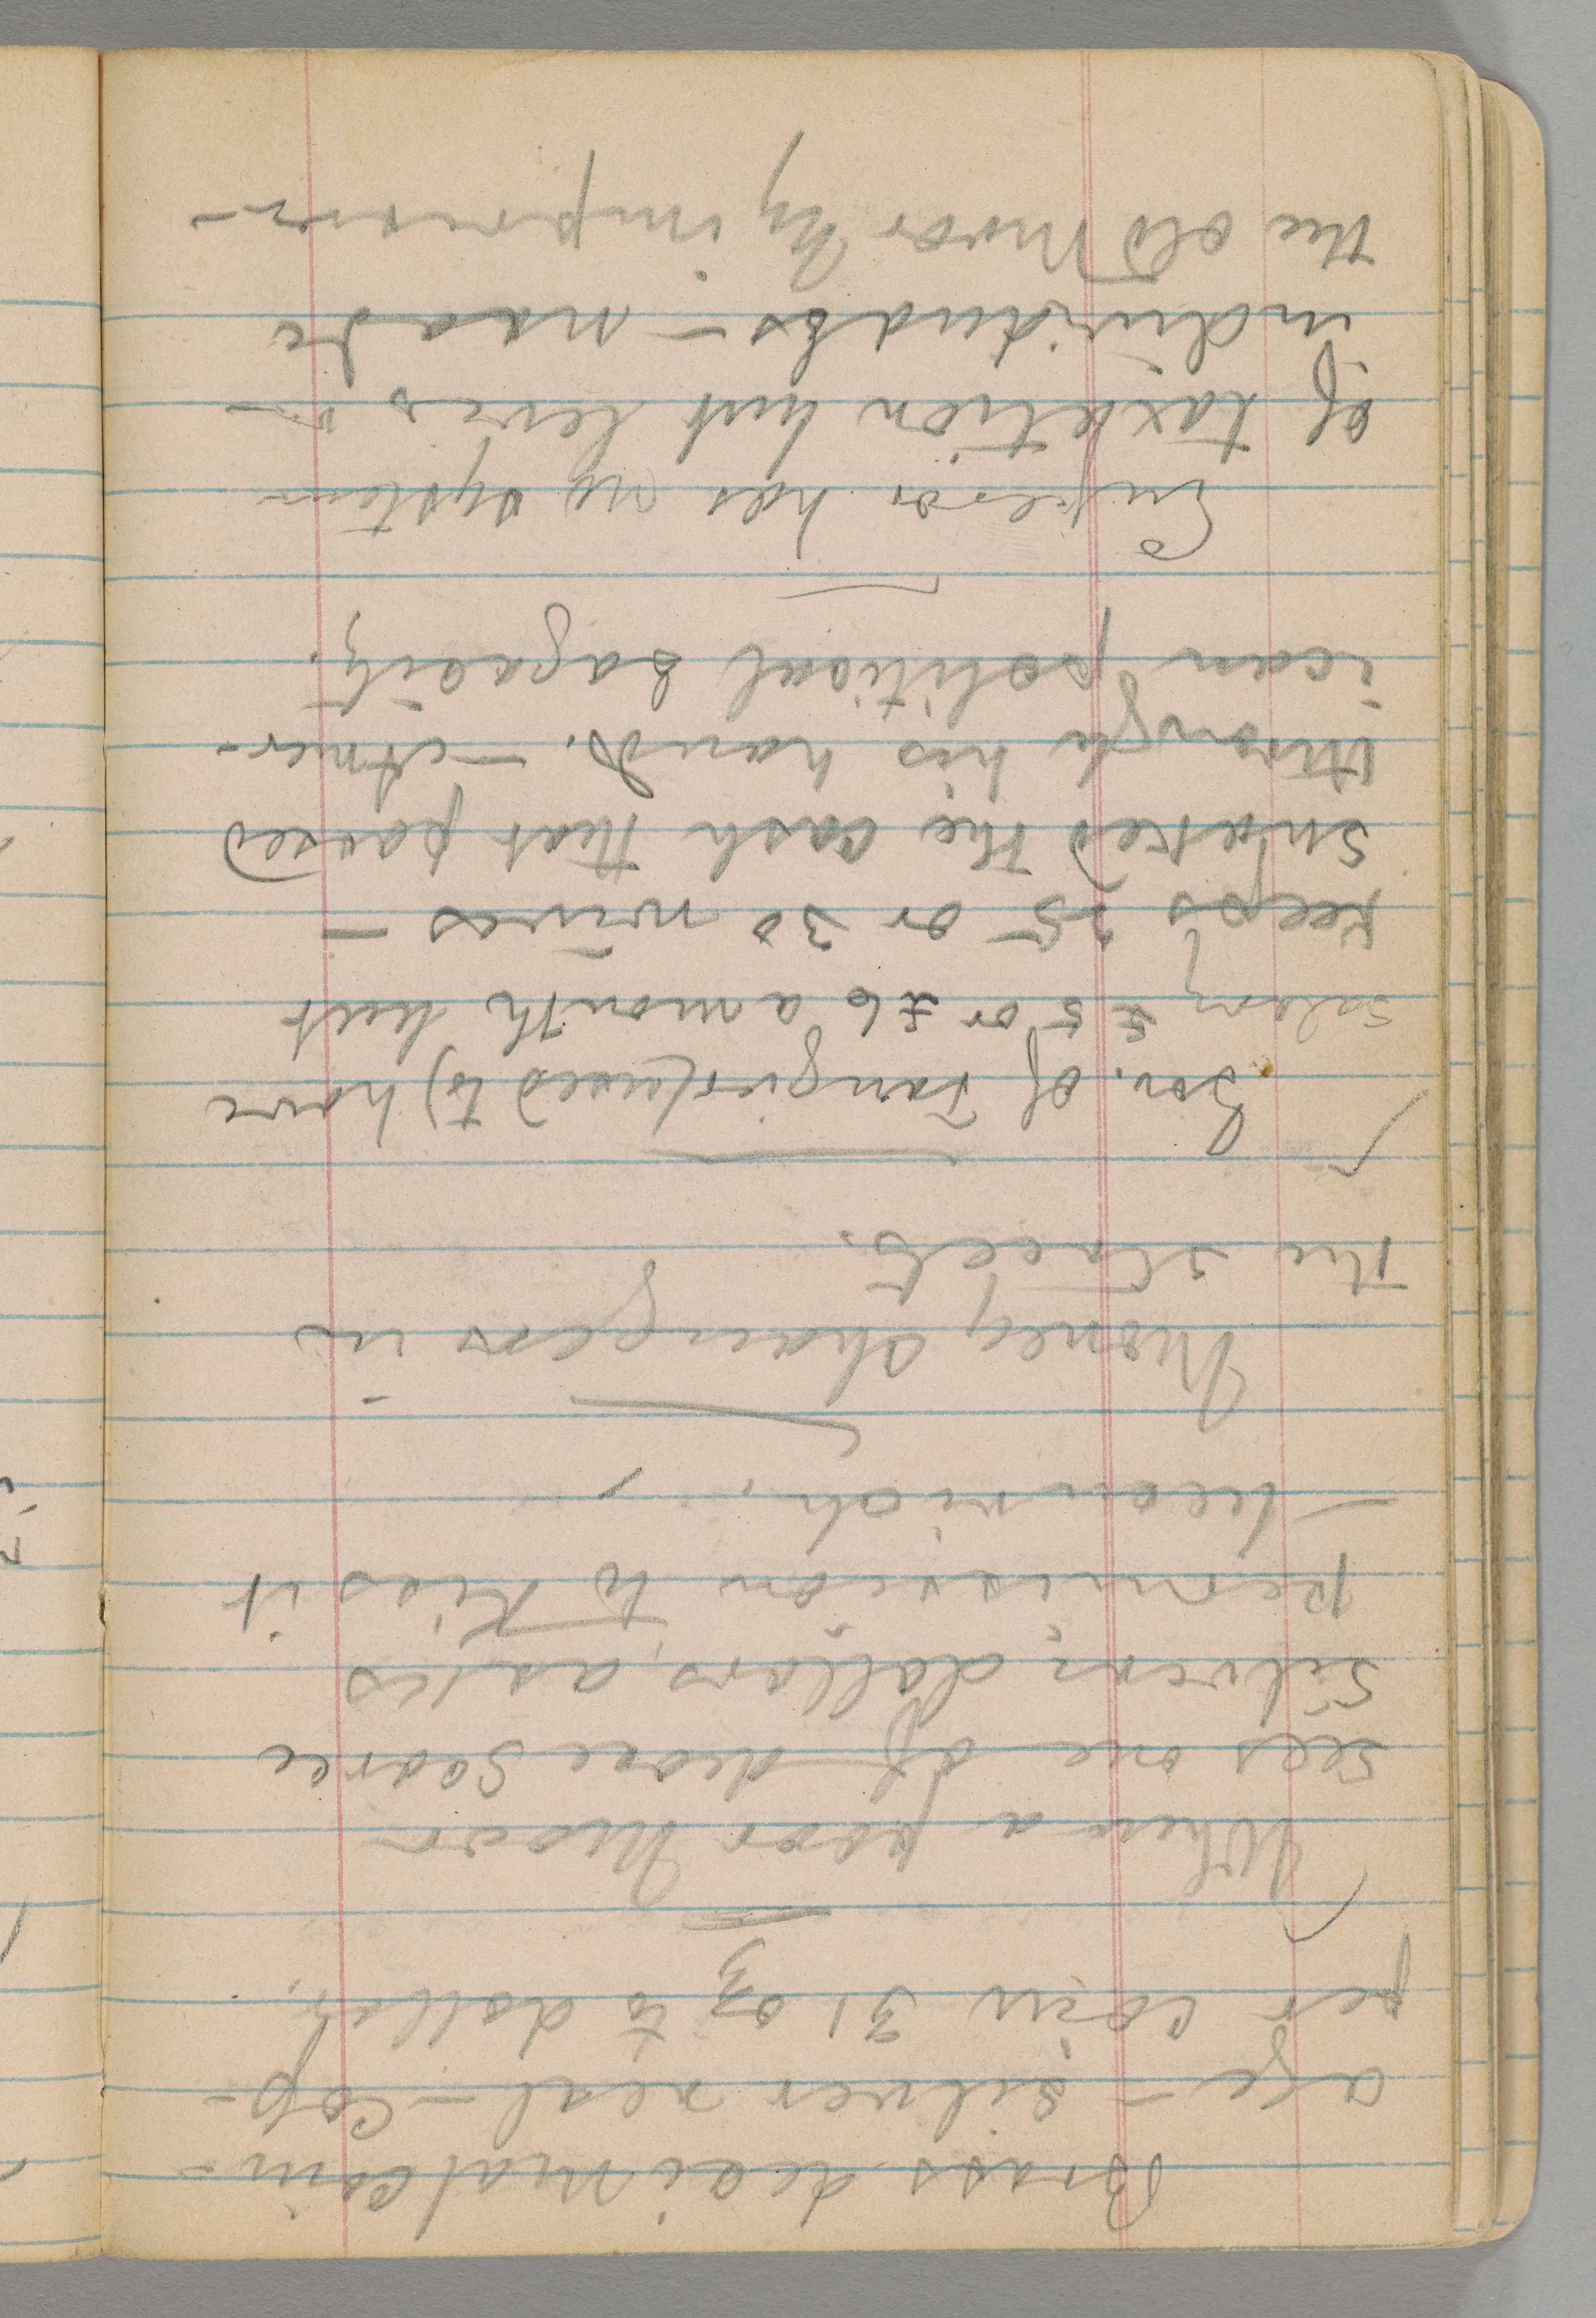 Brass decimal coin-
age - silver real - Cop-
per coin 31 oz to dollar.
When a poor Moor
sees one of these scarce
silver dollars, asks
permission to kiss it
- been rich.
Money changers in
the streets.
Gov. of Tangier (used to) have
salary £5 or £6 a month but
keeps 25 or 30 wives -
snaked the cash that passed
through his hands. - Amer-
ican political sagacity.
Emperor has no system
of taxation but levies on
individuals - made
the old Moor by imprison-